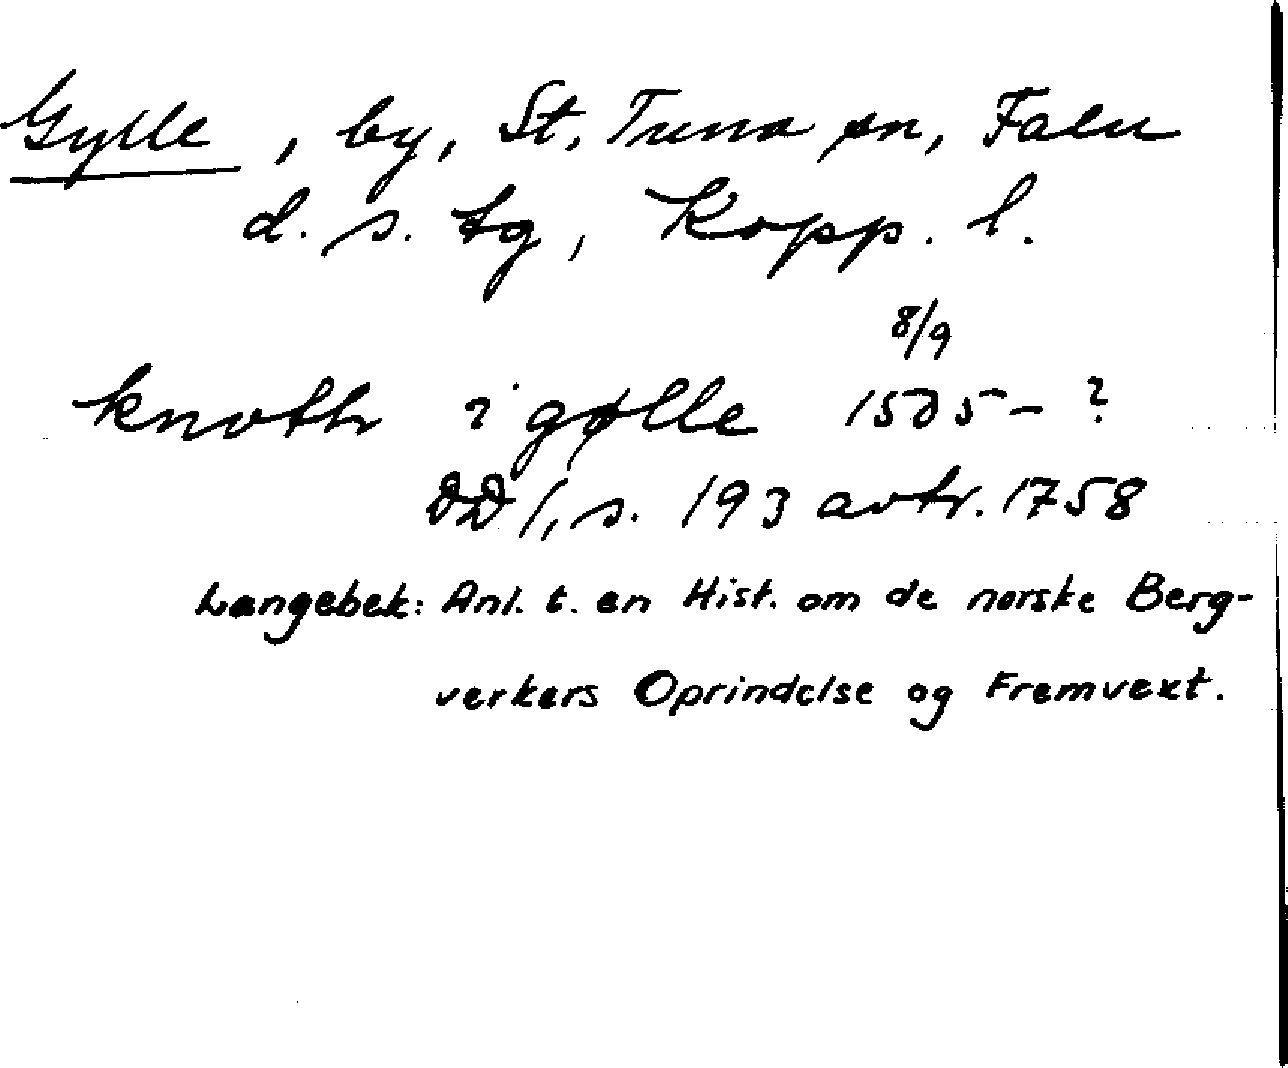 Gylle, by, St. Tuna sn, Falu
d. s. tg, Kopp. l.
8/9
knoth i gølle 1505 – ?
DD 1, s. 193 avtr. 1758
Langebek: Anl. t. en Hist. om de norske Berg-
verkers Oprindelse og Fremvext.